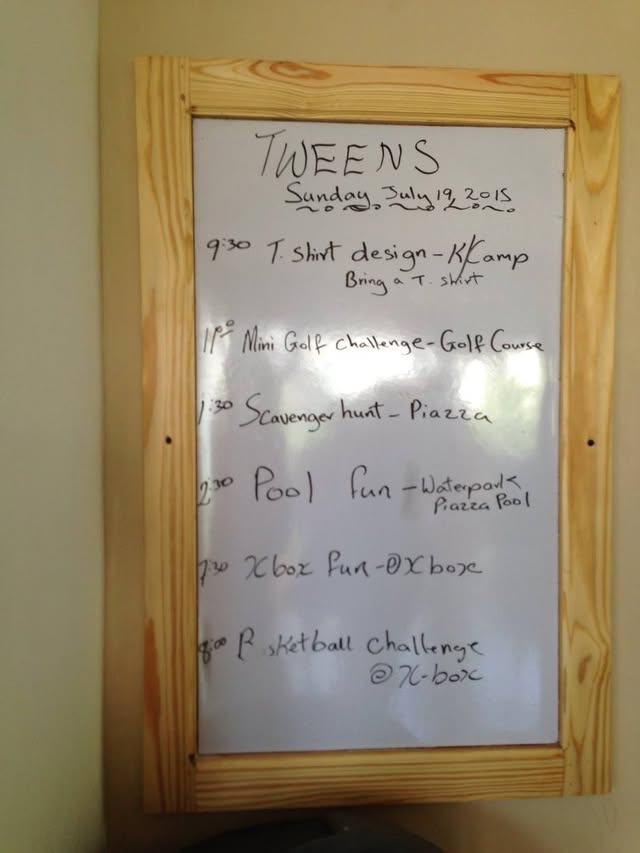 TWEENS
Sunday July 19, 2015
9:30 T. shirt design - K/Camp
Bring a T. shirt
11:00 Mini Golf challenge - Golf Course
1:30 Scavenger hunt - Piazza
2:30 Pool fun - Waterpark
Piazza Pool
7:30 Xbox fun - @Xbox
8:00 B sketball challenge
@ X-box